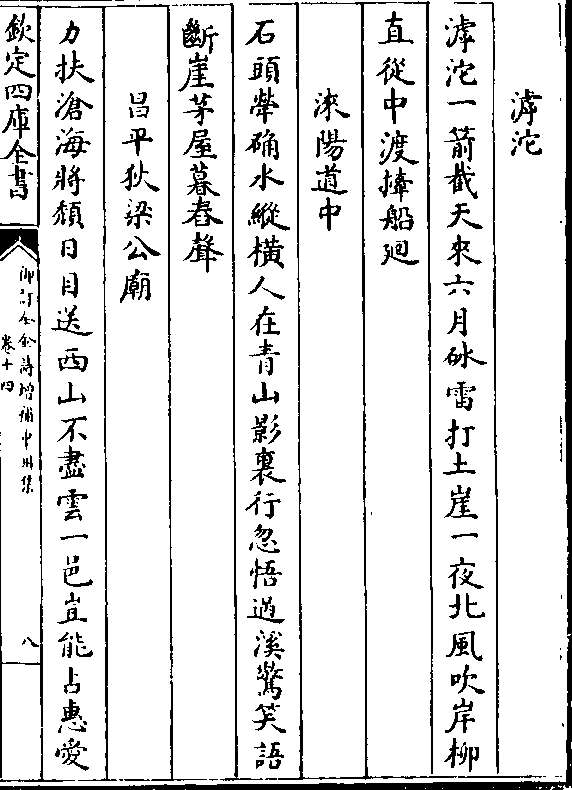 滹沱
滹沱一箭截天來六月砅雷打土崖一夜北風吹岸柳
直從中渡捧船廻
淶陽道中
石頭犖确水縱橫人在青山影裏行忽悟過溪驚笑語
斷崖茅屋暮舂聲
昌平狄梁公廟
力扶滄海將頽日目送西山不盡雲一邑豈能占惠愛
欽定四庫全書
御訂全金詩增補中州集
卷十四
八